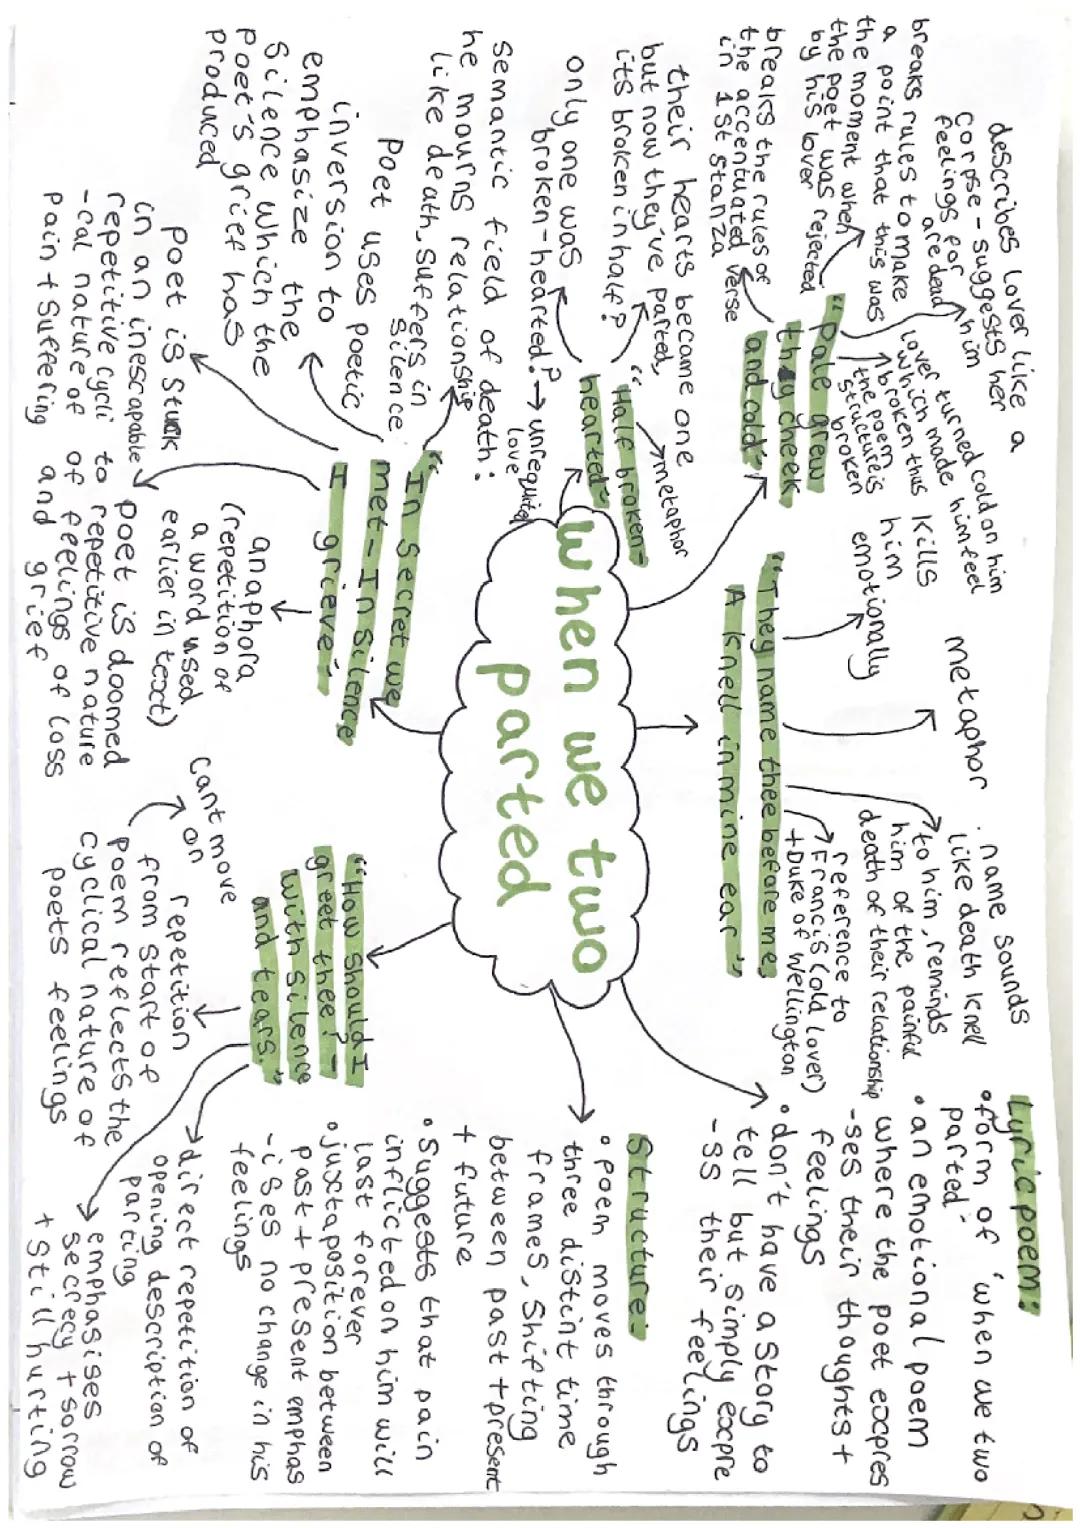 describes lover like a
corpse - suggests her
feelings for him
are dead
breaks rules to make
a point that this was
the moment when
the poet was rejected
by his lover
lover turned cold on him
which made him feel
broken thus
the poem
structure is
broken
"pale grew
thy cheek
and cold"
breaks the rules of
the accentuated verse
in 1st stanza
their hearts became one
but now they've parted,
its broken in half?
only one was
broken-hearted? → unrequited
love
metaphor
"Half broken-
hearted"
semantic field of death:
he mourns relationship
like death, suffers in
silence
poet uses poetic
inversion to
emphasize the
silence which the
poet's grief has
produced
"In secret we
met - In silence
I grieve"
anaphora
(repetition of
a word used
earlier in text)
poet is stuck
in an inescapable
repetitive cycli
-cal nature of
pain + suffering
poet is doomed
to repetitive nature
of feelings of loss
and grief
When we two
parted
kills
him
emotionally
metaphor
. name sounds
like death knell
to him, reminds
him of the painful
death of their relationship
reference to
Francis (old lover)
+ Duke of Wellington
"They name thee before me,
A knell in mine ear"
"How should I
greet thee? -
with silence
and tears."
cant move
on
repetition
from start of
poem reflects the
cyclical nature of
poets feelings
direct repetition of
opening description of
parting
emphasises
secrecy + sorrow
+ still hurting
Lyric poem:
• form of 'when we two
parted'
• an emotional poem
where the poet expres
-ses their thoughts +
feelings
• don't have a story to
tell but simply expre
-ss their feelings
Structure:
• poem moves through
three distint time
frames, shifting
between past + present
+ future
• Suggests that pain
inflicted on him will
last forever
• juxtaposition between
past + present emphas
-ises no change in his
feelings